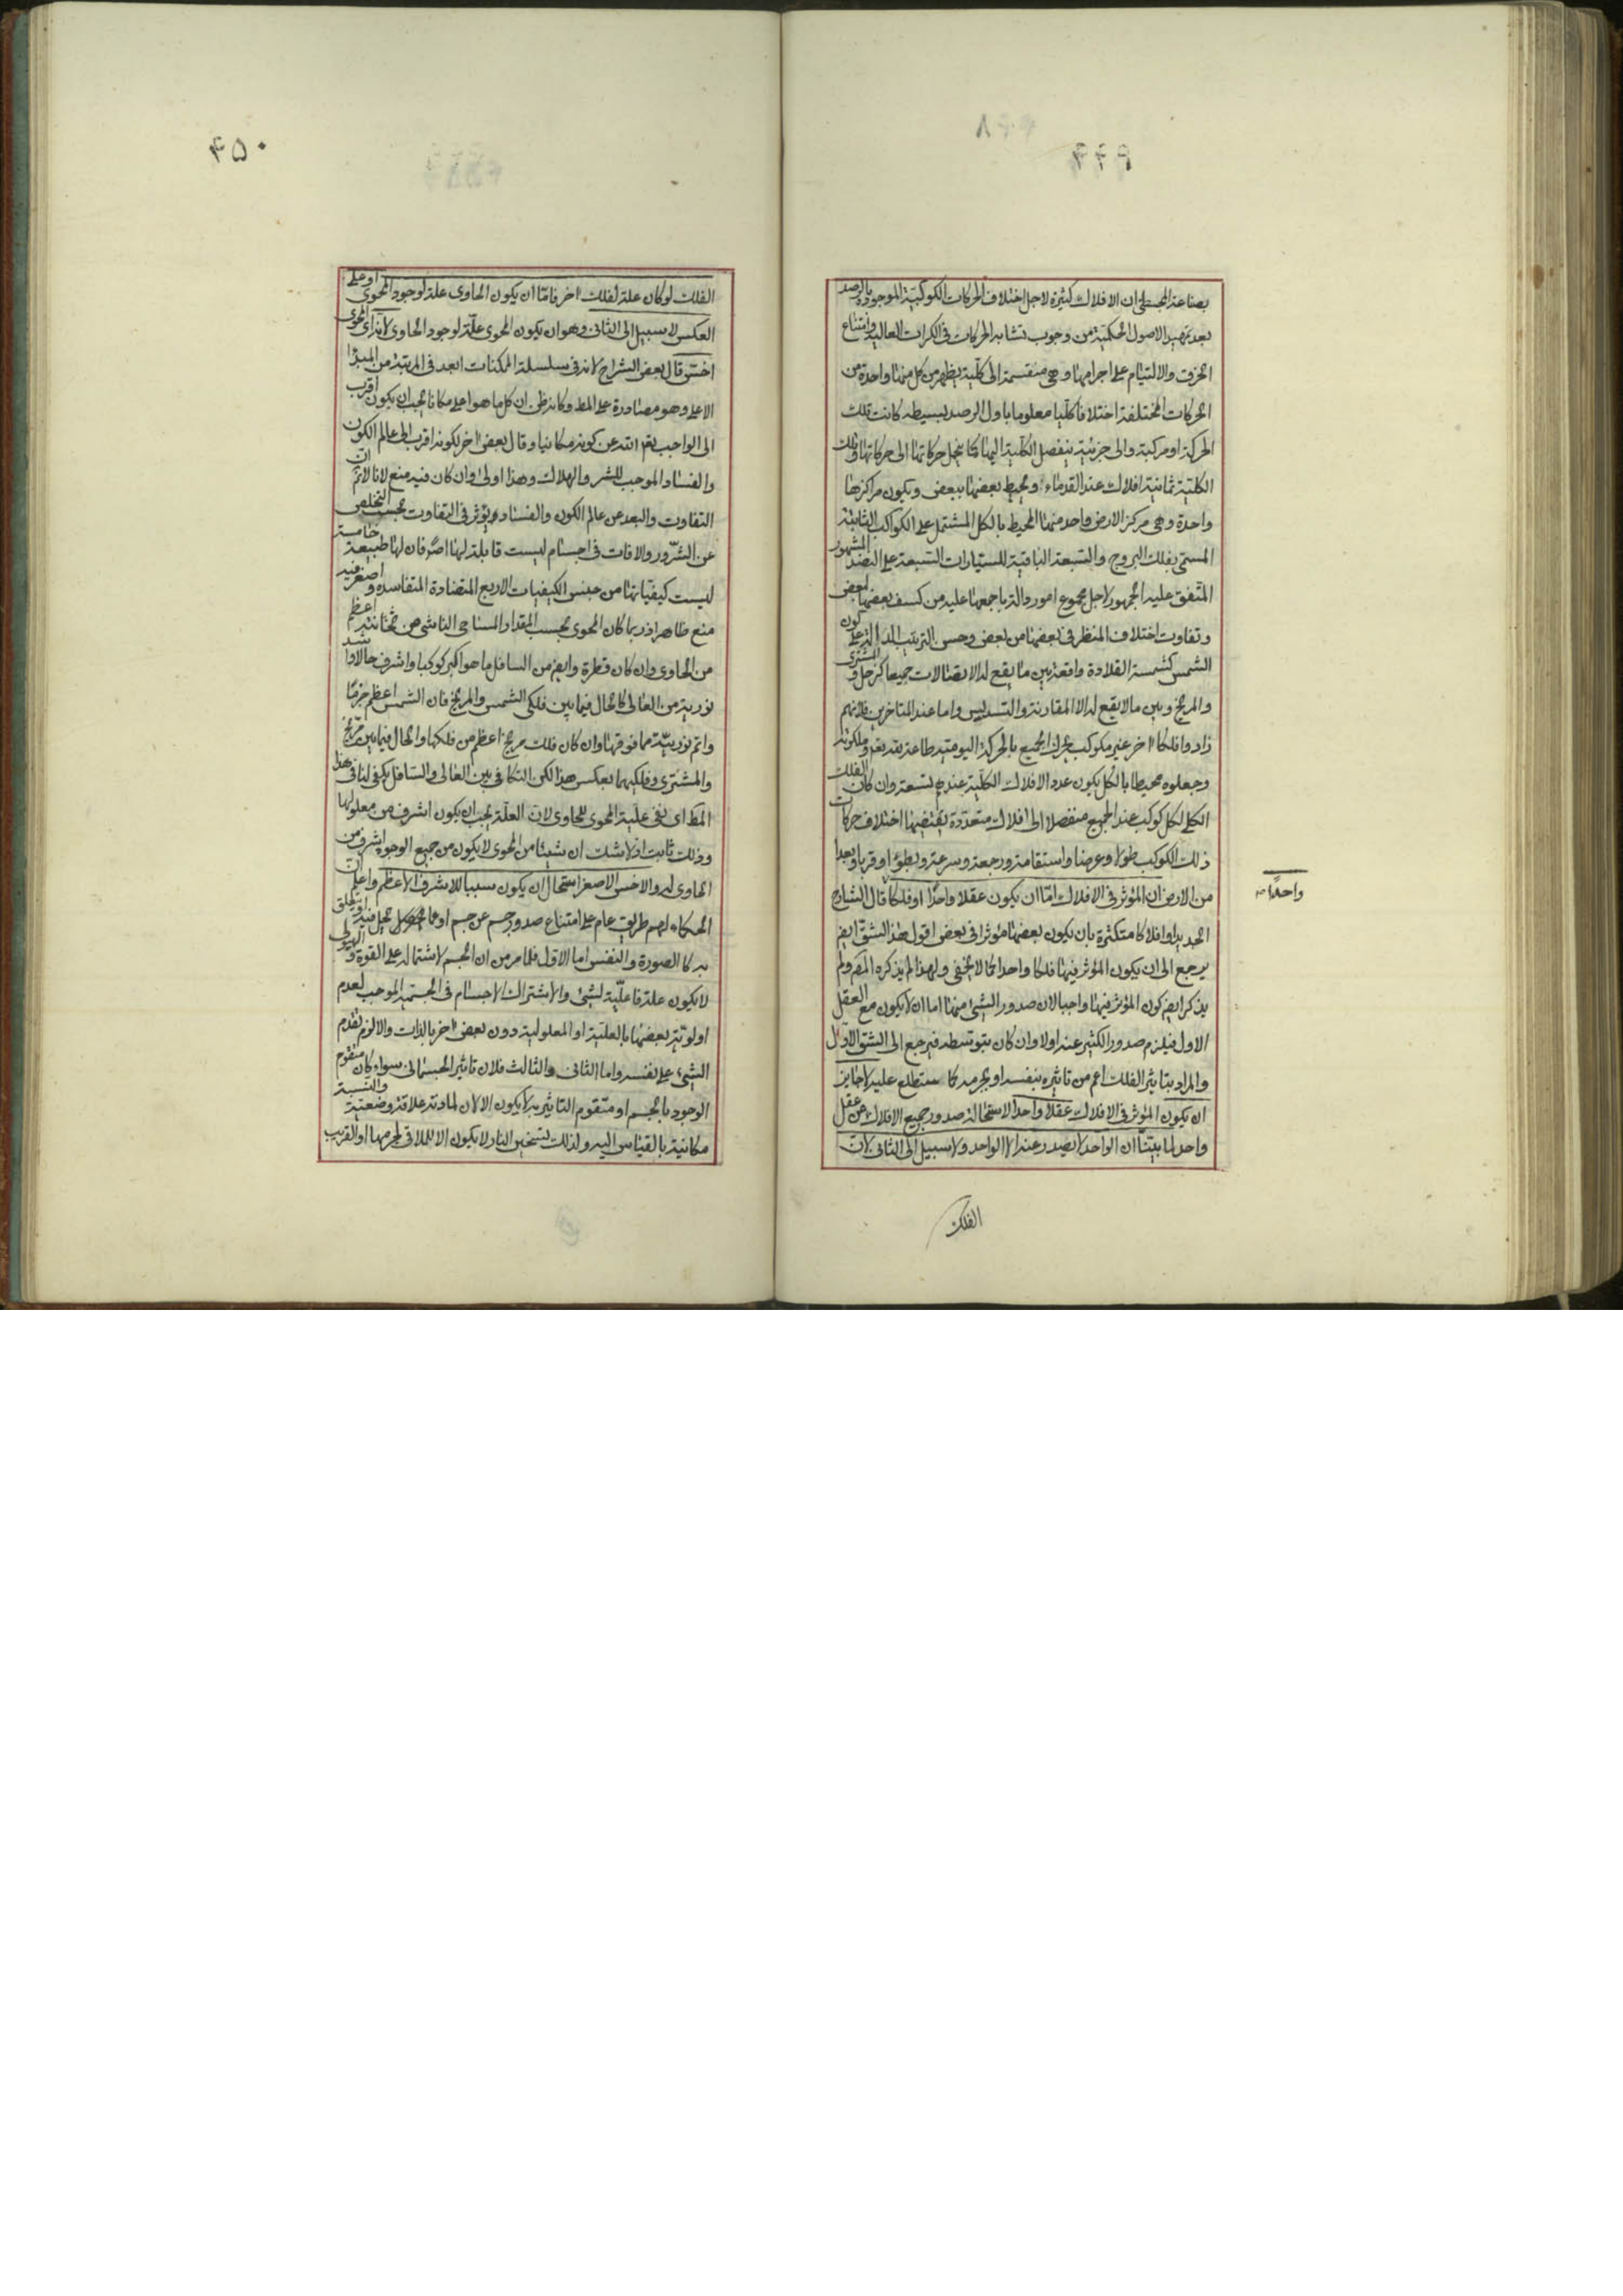 ۴۴۹
بصناعة المجسطى ان الافلاك كثيرة لاجل اختلاف الحركات الكوكبية الموجودة بالرصد
بعد تمهيد الاصول الحكمية من وجوب تشابه الحركات فى الكرات العالية وامتناع
الخرق والالتيام على اجرامها وهى منقسمة الى كلية يظهر من كل منها واحدة من
الحركات المختلفة اختلافا كليا معلوما باول الرصد بسيطة كانت تلك
الحركة او مركبة والى جزئية ينفصل الكلية اليها كما ينحل حركاتها الى حركاتها وتلك
الكلية ثمانية افلاك عند القدماء ومحيط بعضها ببعض ويكون مراكزها
واحدة وهى مركز الارض واحد منها المحيط بالكل المشتمل على الكواكب الثابتة
المسمى بفلك البروج والسبعة الباقية للسيارات السبعة على النضد المشهور
المتفق عليه الجمهور لاجل مجموع امور دالة باجمعها عليه من كسف بعضها لبعض
وتفاوت اختلاف المنظر فى بعضها من بعض وحسن الترتيب الدال على كون
الشمس كشمسة القلادة واقعة بين ما يقع له الاتصالات جميعا كزحل والمشترى
والمريخ وبين ما لا يقع له الا المقارنة والتسديس واما عند المتاخرين فلانهم
زادوا فلكا اخر غير مكوكب يحرك الجميع بالحركة اليومية طاعة لله تعم وملكوته
وجعلوه محيطا بالكل يكون عدد الافلاك الكلية عندهم تسعة وان كان الفلك
الكلى لكل كوكب عند الجميع منفصلا الى افلاك متعددة يقتضيها اختلاف حركات
ذلك الكوكب طولا وعرضا واستقامة ورجعة وسرعة وبطؤا وقربا وبعدا
من الارض ان المؤثر فى الافلاك اما ان يكون عقلا واحدا او فلكا قال الشارح
واحدًا صح
الجديد او افلاكا متكثرة بان يكون بعضها مؤثرا فى بعض اقول هذا الشق ايض
يرجع الى ان يكون المؤثر فيها فلكا واحدا كما لا يخفى ولهذا لم يذكره المص ولم
يذكر ايض كون المؤثر فيها واجبا لان صدور الشئ منها اما ان لا يكون مع العقل
الاول فيلزم صدور الكثير عنه اولا وان كان بتوسطه فيرجع الى الشق الاول
والمراد بتاثير الفلك اعم من تاثيره بنفسه او بجرمه كما ستطلع عليه لا جايز
ان يكون المؤثر فى الافلاك عقلا واحدا لاستحالة صدور جميع الافلاك عن عقل
واحد لما بيّنا ان الواحد لا يصدر عنه الا الواحد ولا سبيل الى الثانى لان
الفلك
۴۵۰
الفلك لو كان علة لفلك اخر فاما ان يكون الحاوى علة لوجود المحوى او على
العكس لا سبيل الى الثانى وهو ان يكون المحوى علة لوجود الحاوى لانه اى المحوى
اخس قال بعض الشراح لانه فى سلسلة الممكنات ابعد فى المرتبة من المبدا
الاعلى وهو مصادرة على المط وكانه ظن ان كل ما هو اعلى مكانا يجب ان يكون اقرب
الى الواجب تعم انتد عن كونه مكانيا وقال بعض اخر لكونه اقرب الى عالم الكون
والفساد الموجب للشر والهلاك وهذا اولى وان كان فيه منع لانا لا نم ان
التفاوت والبعد عن عالم الكون والفساد يؤثر فى التفاوت بحسب التخلص
عن الشرور والافات فى اجسام ليست قابلة لها اصلا فان لها طبيعة خامسة
ليست كيفياتها من جنس الكيفيات الاربع المتضادة المتفاسدة واصغر فيه
منع ظاهر اذ ربما كان المحوى بحسب المقدار المساحى الناشى من ثخانته اعظم
من الحاوى وان كان قطره وايض من السافل ما هو اكبر كوكبا واشرف حالا واشد
نورية من العالى كالحال فيما بين فلكى الشمس والمريخ فان الشمس اعظم جرمًا
واتم نورية مما فوقها وان كان فلك مريخ اعظم من فلكها والحال فيما بين مريخ
والمشترى وفلكيهما بعكس هذا لكن التكافى بين العالى والسافل يكفى لنا فى هذا
المط اى نفى علية المحوى للحاوى لان العلة يجب ان يكون اشرف من معلولها
وذلك ثابت اذ لا شك ان شيئا من المحوى لا يكون من جميع الوجوه اشرف من
الحاوى له والاخس الاصغر استحال ان يكون سببا للاشرف الاعظم واعلم ان
الحكماء لهم طريق عام على امتناع صدور جسم عن جسم او عما يحل فيه او يتعلق
به كالصورة والنفس اما الاول فلما مر من ان الجسم لاشتماله على القوة والهيولى
لا يكون علة فاعلية لشئ ولاشتراك الاجسام فى الجسمية الموجب لعدم
اولوية بعضها بالعلية او المعلولية دون بعض اخر بالذات والا لزم تقدم
الشئ على نفسه واما الثانى والثالث فلان تاثير الجسمانى سواء كان متقوم
الوجود بالجسم او متقوم التاثير به لا يكون الا لان لمادته علاقة وضعية والنسبة
مكانية بالقياس اليه ولذلك تسخين النار لا يكون الا للملاقى لجرمها او القريب